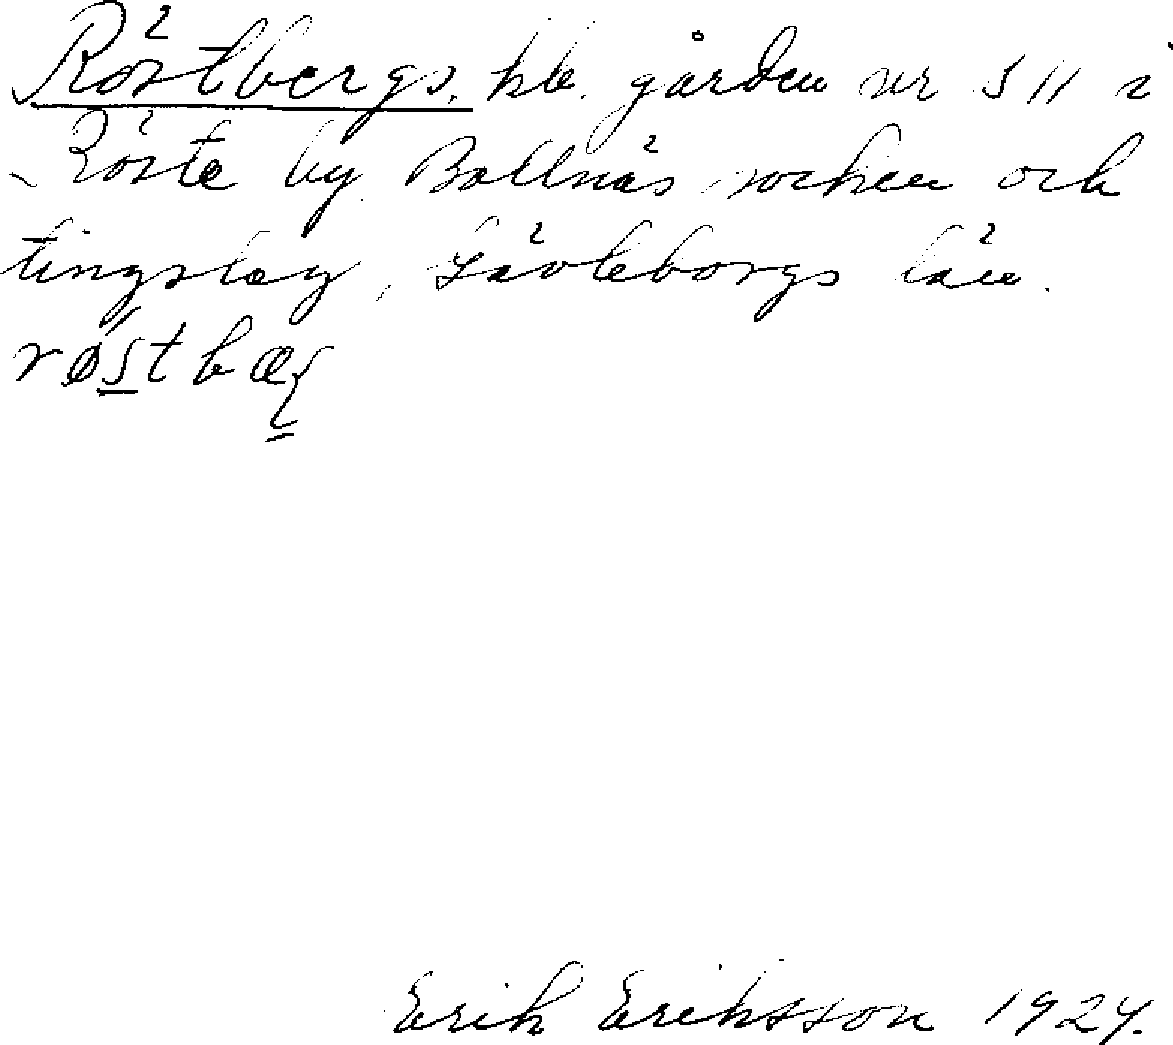 Röstbergs, hb. gården nr 5 11 i
Röste by. Bollnäs socken och
tingslag, Gävleborgs län.
røstbæ
Erik Eriksson 1924.